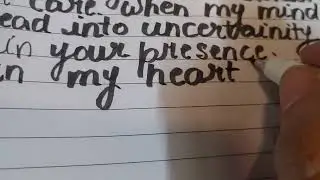 care when my mind
ead into uncertainity
in your presence.
in my heart